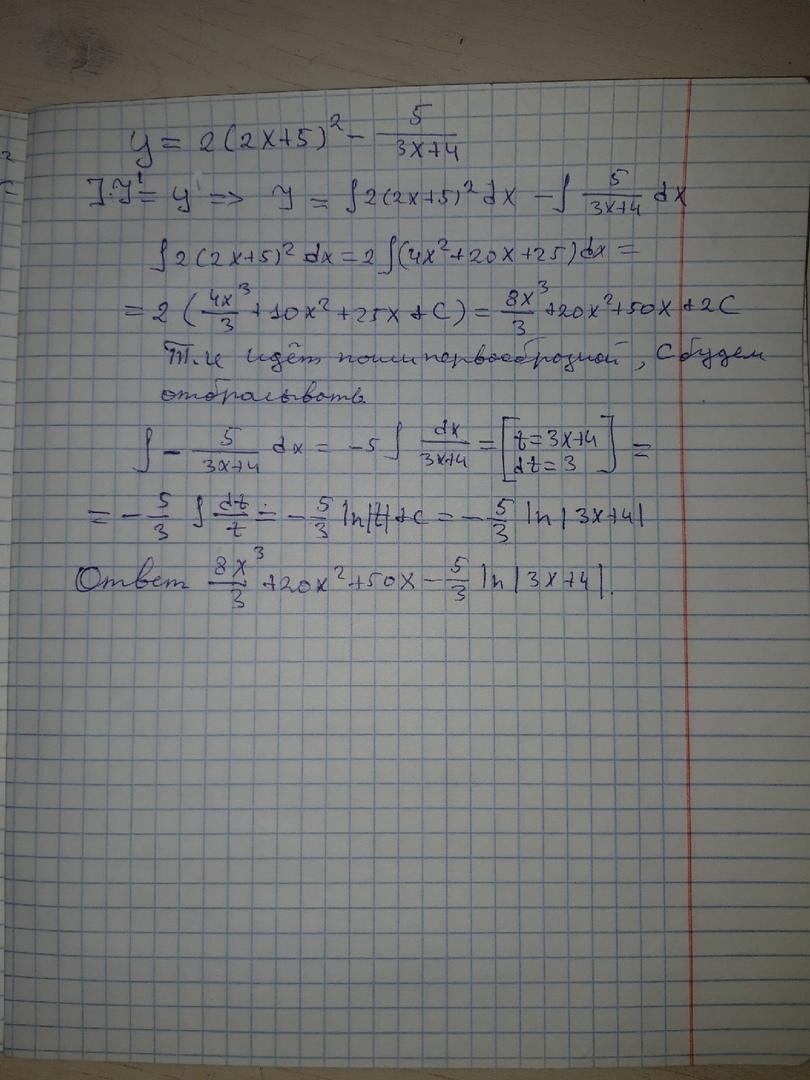 y = 2(2x+5)² - 5/(3x+4)
У' = y => У = ∫2(2x+5)² dx - ∫ 5/(3x+4) dx
∫2(2x+5)² dx = 2∫(4x²+20x+25)dx =
= 2(4x³/3 + 10x² + 25x + C) = 8x³/3 + 20x² + 50x + 2C
Т.к идёт поиск первообразной, С будем
отбрасывать
∫ - 5/(3x+4) dx = -5 ∫ dx/(3x+4) = [t = 3x+4 dt = 3] =
= - 5/3 ∫ dt/t = - 5/3 ln|t| + C = - 5/3 ln|3x+4|
Ответ 8x³/3 + 20x² + 50x - 5/3 ln|3x+4|.